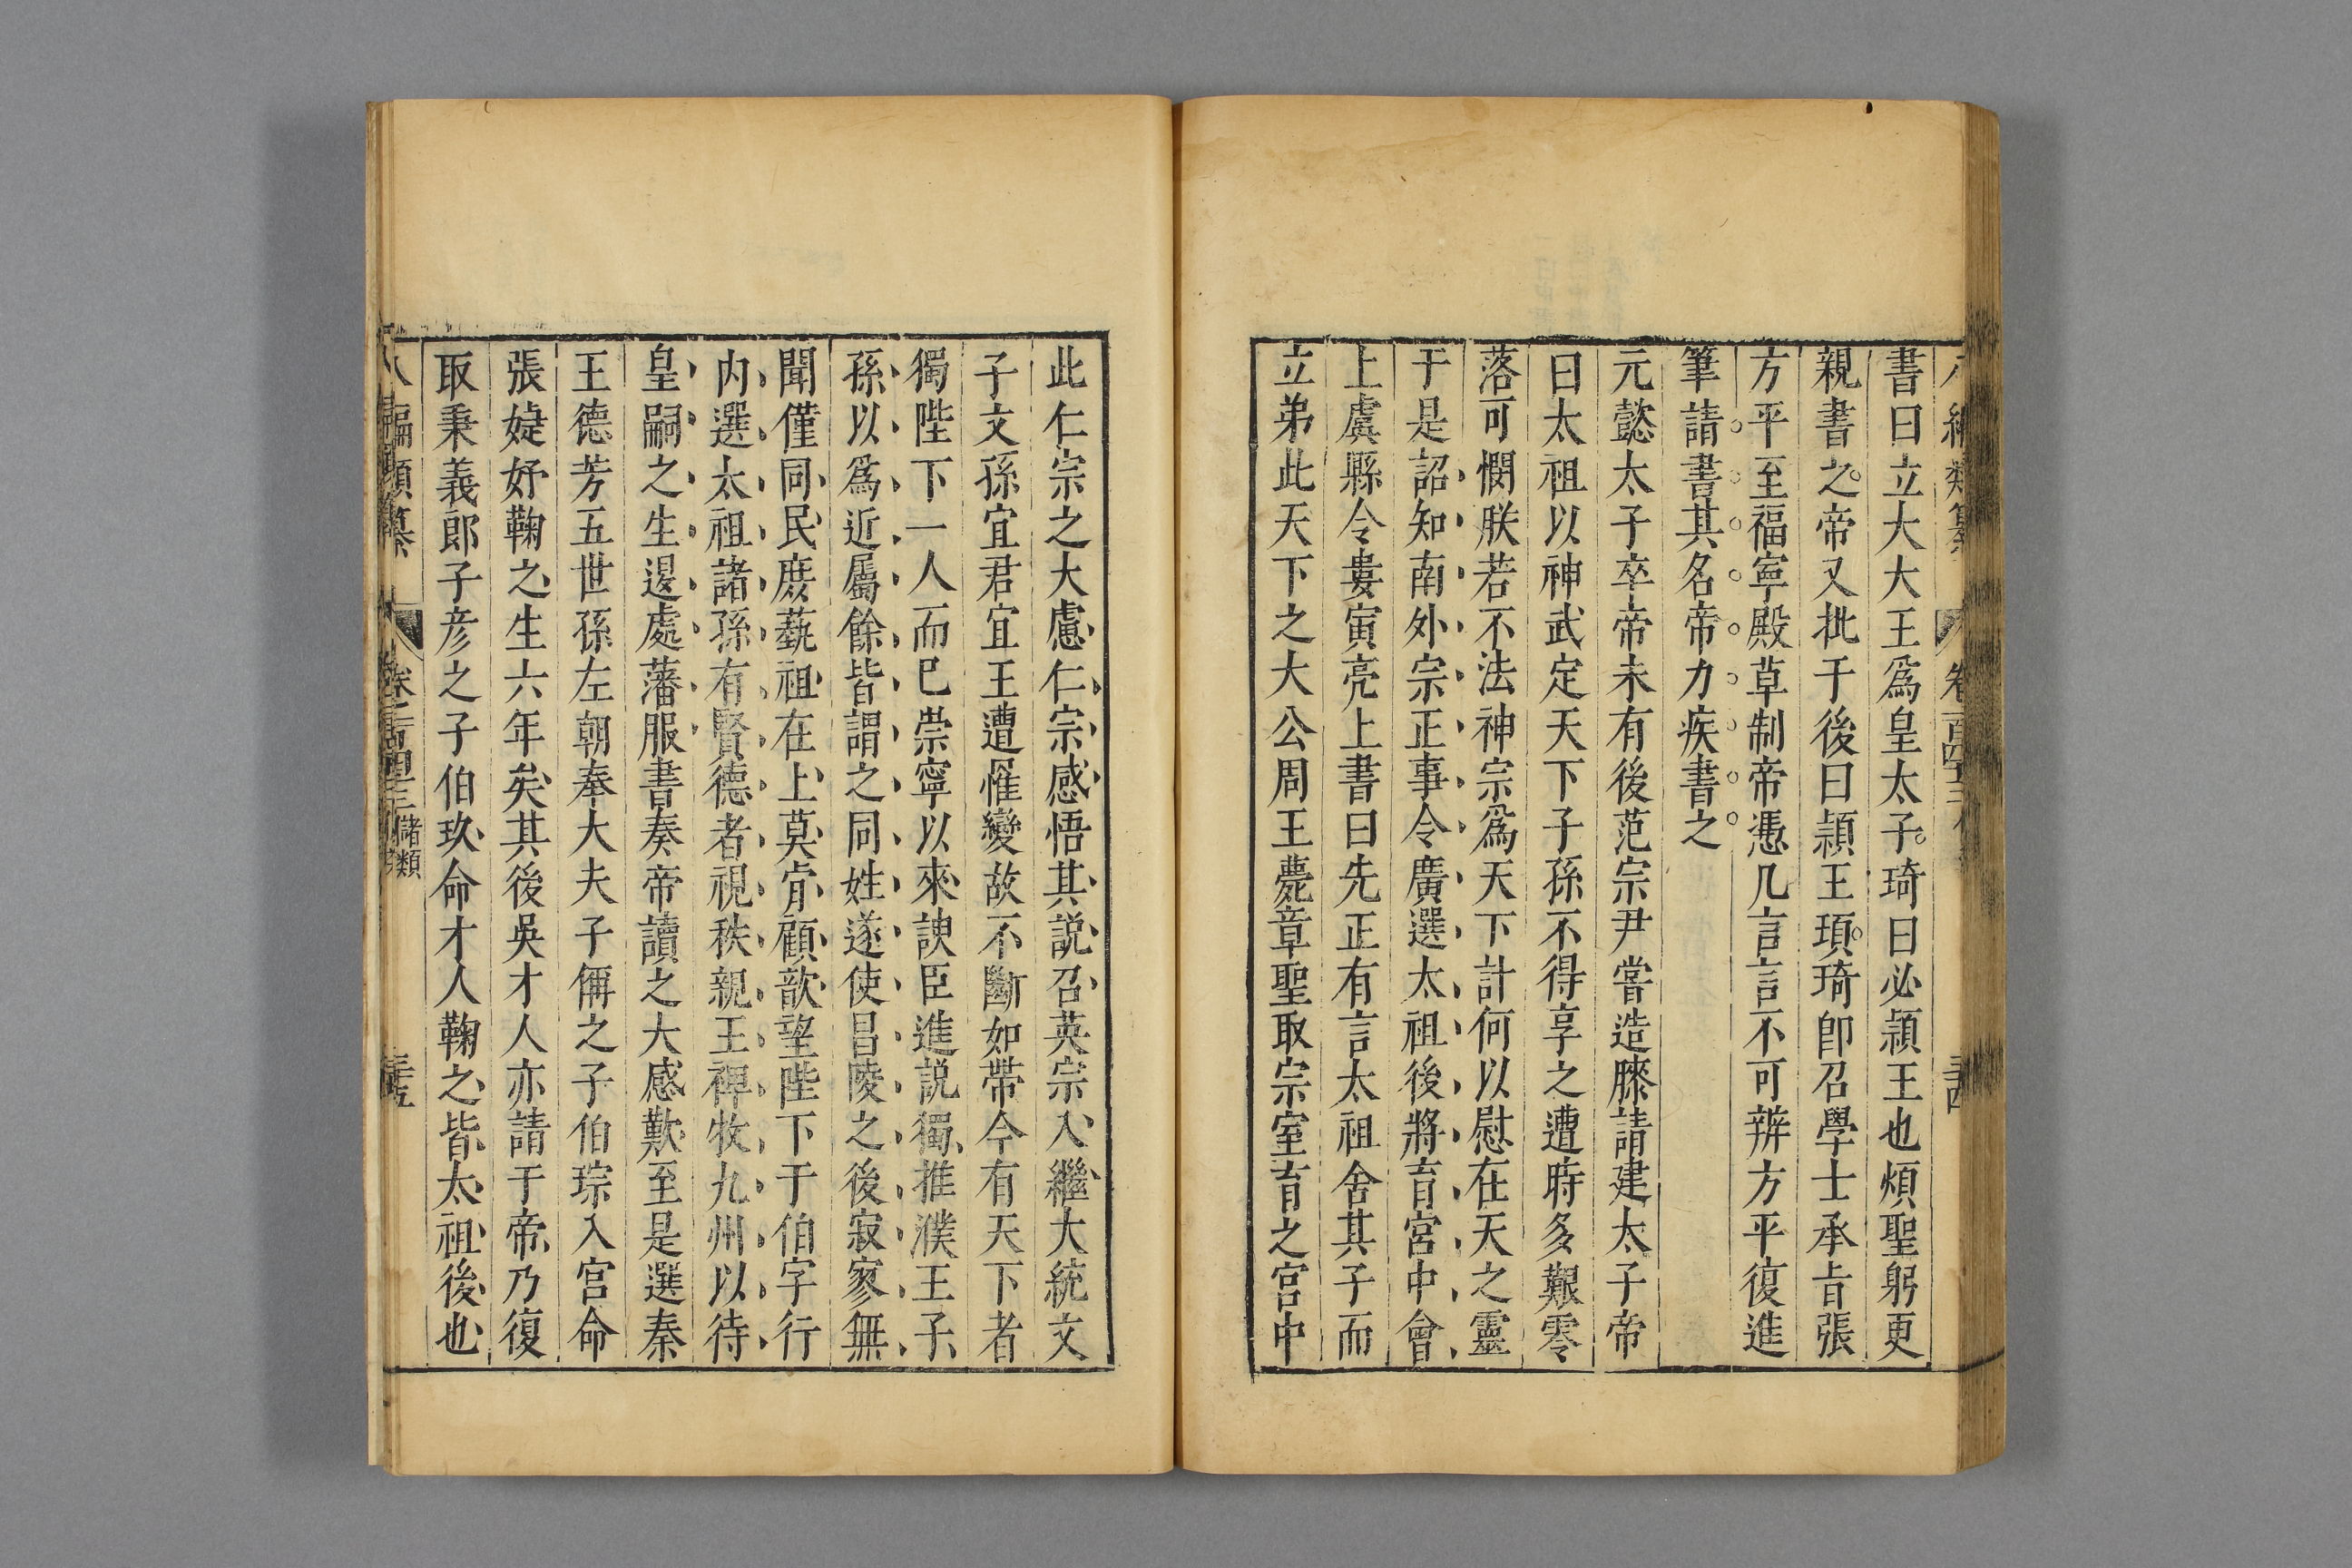 書曰立大大王爲皇太子琦曰必頴王也煩聖躬更
親書之帝又批于後曰頴王頊琦卽召學士承㫖張
方平至福寧殿草制帝憑几言言不可辨方平復進
筆請書其名帝力疾書之
元懿太子卒帝未有後范宗尹嘗造膝請建太子帝
曰太祖以神武定天下子孫不得享之遭時多艱零
落可憫朕若不法神宗爲天下計何以慰在天之靈
于是詔知南外宗正事令廣選太祖後將育宮中會
上虞縣令婁寅亮上書曰先正有言太祖舍其子而
立弟此天下之大公周王薨章聖取宗室育之宮中
此仁宗之大慮仁宗感悟其說召英宗入繼大統文
子文孫宜君宜王遭罹變故不斷如帶今有天下者
獨陛下一人而已崇寧以來諛臣進說獨推濮王子
孫以爲近屬餘皆謂之同姓遂使昌陵之後寂寥無
聞僅同民庶藝祖在上莫肯顧歆望陛下于伯字行
内選太祖諸孫有賢德者視秩親王裨牧九州以待
皇嗣之生退處藩服書奏帝讀之大感歎至是選秦
王德芳五世孫左朝奉大夫子偁之子伯琮入宮命
張婕妤鞠之生六年矣其後吳才人亦請于帝乃復
取秉義郎子彦之子伯玖命才人鞠之皆太祖後也
八編類纂 卷之一百四十三 儲類 三十五